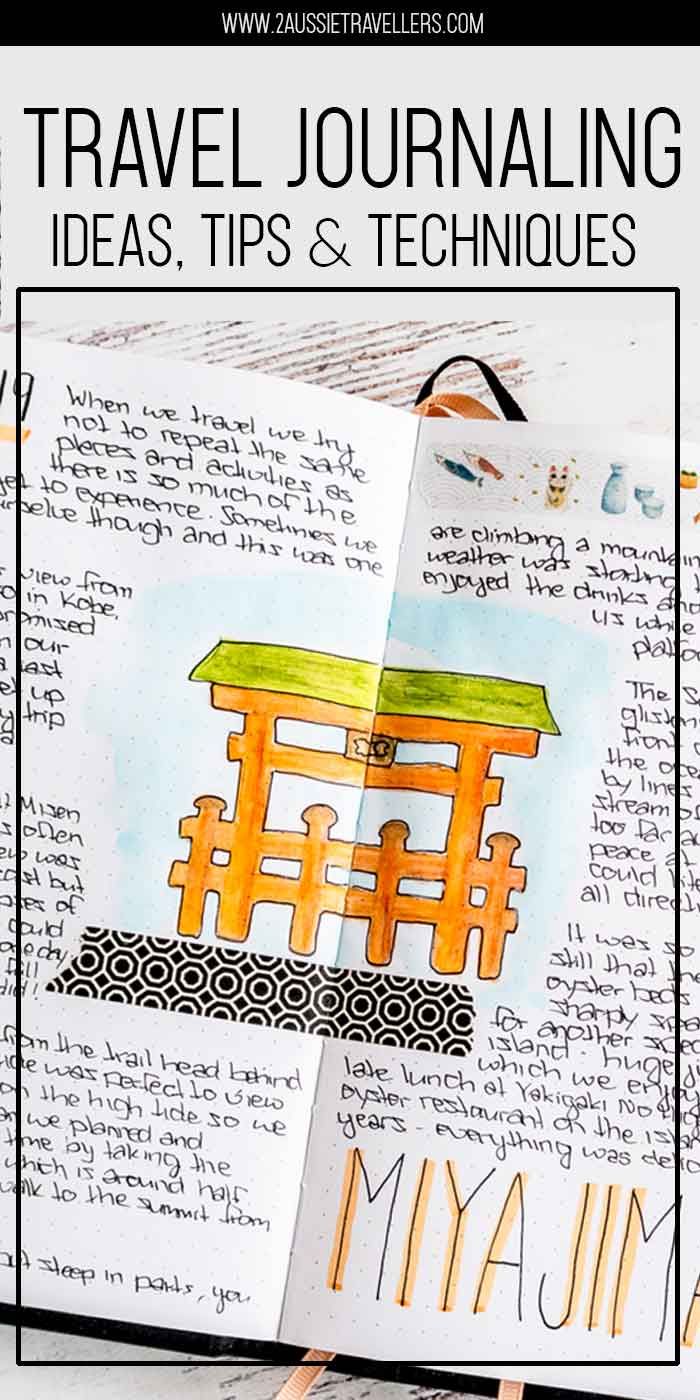 WWW.2AUSSIETRAVELLERS.COM
TRAVEL JOURNALING
IDEAS, TIPS & TECHNIQUES
When we travel we try
not to repeat the same
places and activities as
there is so much of the
to experience. Sometimes we
though and this was one
view from
in Kobe,
our
last
up
trip
a
Misen
often
was
but
of
could
day
fall
did!
from the trail head behind
was perfect to view
on the high tide so we
we planned and
time by taking the
which is around half
walk to the summit from
sleep in parts, you
are climbing a mountain
weather was starting
enjoyed the drinks and
us while
The
front
the
by lines
stream of
too far
peace
could
all
It was so
still that
oyster beds
sharply
for another
island. huge
which we enjoy
late lunch at Yakigaki No
oyster restaurant on the
years - everything was
MIYAJIMA